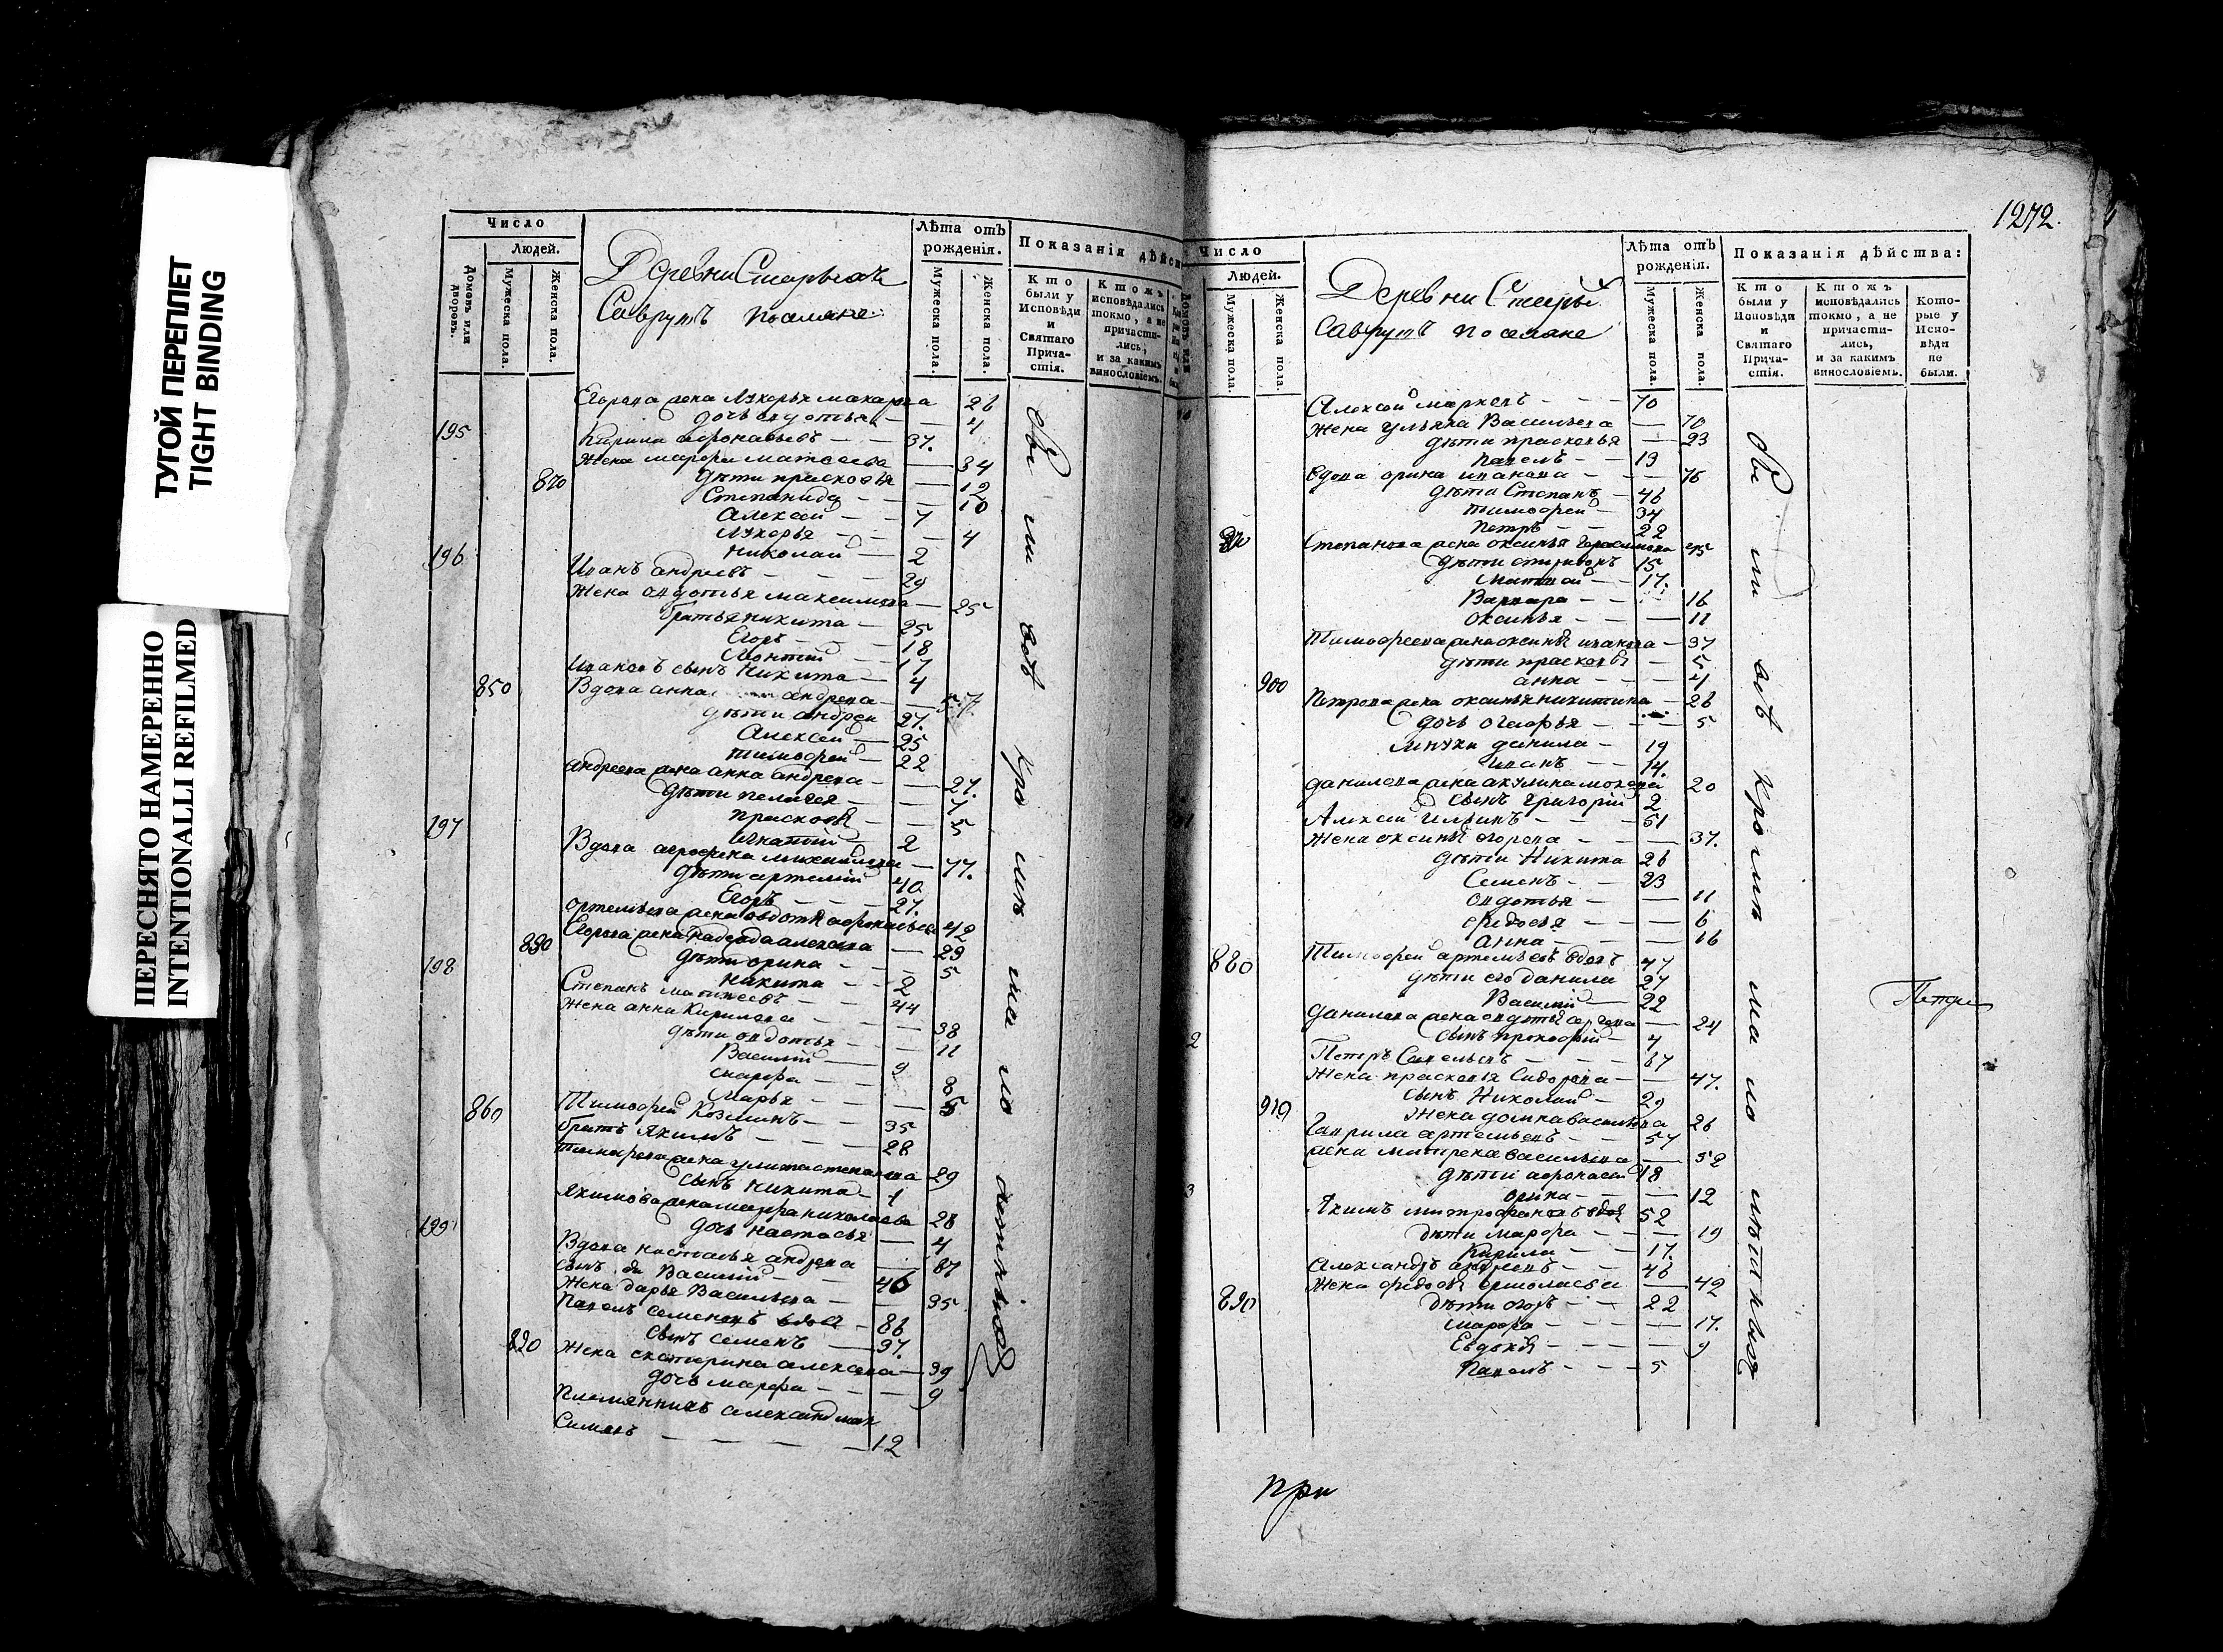 ТУГОЙ ПЕРЕПЛЕТ
TIGHT BINDING
ПЕРЕСНЯТО НАМЕРЕННО
INTENTIONALLI REFILMED
Число
Людей.
Домовъ или дворовъ.
Мужеска пола.
Женска пола.
Деревни Старыхъ
Саврутъ поселяне
Лѣта отъ рожденія.
Мужеска пола.
Женска пола.
Показанія дѣйст
Кто были у Исповѣди и Святаго Причастія.
Ктожъ исповѣдались токмо, а не причастились, и за какимъ винословіемъ.
Егорова жена лукерья макарова 26
дочь овдотья 4
195 Кирила афонасьевъ 37.
Жена марфа матвеева 34
870 дѣти прасковья 12
Степанида 10
Алексей 7
Лукерья 4
николай 2
196 Иванъ андреевъ 29
Жена овдотья максимова 25
братья никита 25
Егоръ 18
Леонтий 17
Ивановъ сынъ никита 4
850 Вдова анна андреева 57.
дѣти андрей 27.
Алексей 25
тимофей 22
андреева жена анна андреева 27.
дѣти пелагея 7
прасковья 5
игнатий 2
197 Вдова афросенья михайлова 77.
дѣти артемий 40
Егоръ 27.
артемьева жена овдотья афонасьева 42
880 Егорова жена надежда алексеева 29
дѣти орина 5
никита 2
198 Степанъ матвеевъ 44
Жена анна Кирилова 38
дѣти овдотья 11
Василий 9
марфа 8
марья 5
860 Тимофей Козминъ 35
братъ Якимъ 28
тимофеева жена улита степанова 29
сынъ никита 1
Якимова жена марфа николаева 28
дочь настасья 4
199 Вдова настасья андреева 67
сынъ ея Василий 46
Жена дарья Васильева 35
Павелъ семеновъ вдовъ 86
сынъ семенъ 37.
890 Жена екатерина алексеева 39
дочь марфа 9
Племянникъ александъ мак
симовъ 12
1272.
Число
Людей.
Мужеска пола.
Женска пола.
Деревни Стары
Саврутъ поселяне
Лѣта отъ рожденія.
Мужеска пола.
Женска пола.
Показанія дѣйства:
Кто были у Исповѣди и Святаго Причастія.
Ктожъ исповѣдались токмо, а не причастились, и за какимъ винословіемъ.
Которые у Исповѣди не были.
Алексей марковъ 70
Жена ульяна Васильева 70
дѣти прасковья 23
павелъ 13
вдова орина иванова 76
дѣти Степанъ 46
тимофей 34
петръ 22
870 Степанова жена оксинья герасимова 45
дѣти спиридонъ 15
матвей 17.
Варвара 16
оксинья 11
Тимофеева жена оксинья иванова 37
дѣти прасковья 5
900 анна 4
Петрова жена оксинья никитина 26
дочь 5
внуки данила 19
иванъ 14.
данилова жена акулина мокеева 20
сынъ григорий 2
Алексей ильинъ 51
Жена оксинья егорова 37.
дѣти Никита 26
Семенъ 23
овдотья 11
федосья 6
анна 16
880 Тимофей артемьевъ вдовъ 47
дѣти его данила 27
Василий 22
данилова жена овдотья сергеева 24
сынъ прокофий 4
Петръ Савельевъ 67
Жена прасковья Сидорова 47.
сынъ Николай 29
910 Жена домна васильева 26
Гаврила артемьевъ 57
жена матрена васильева 52
дѣти афонасей 18
орина 12
Якимъ митрофановъ вдовъ 52
дѣти марфа 19
Кирила 17.
Александръ андреевъ 46
Жена федосья ермолаева 42
890 дѣти егоръ 22
марфа 17.
Евдокия 9
Павелъ 5
при